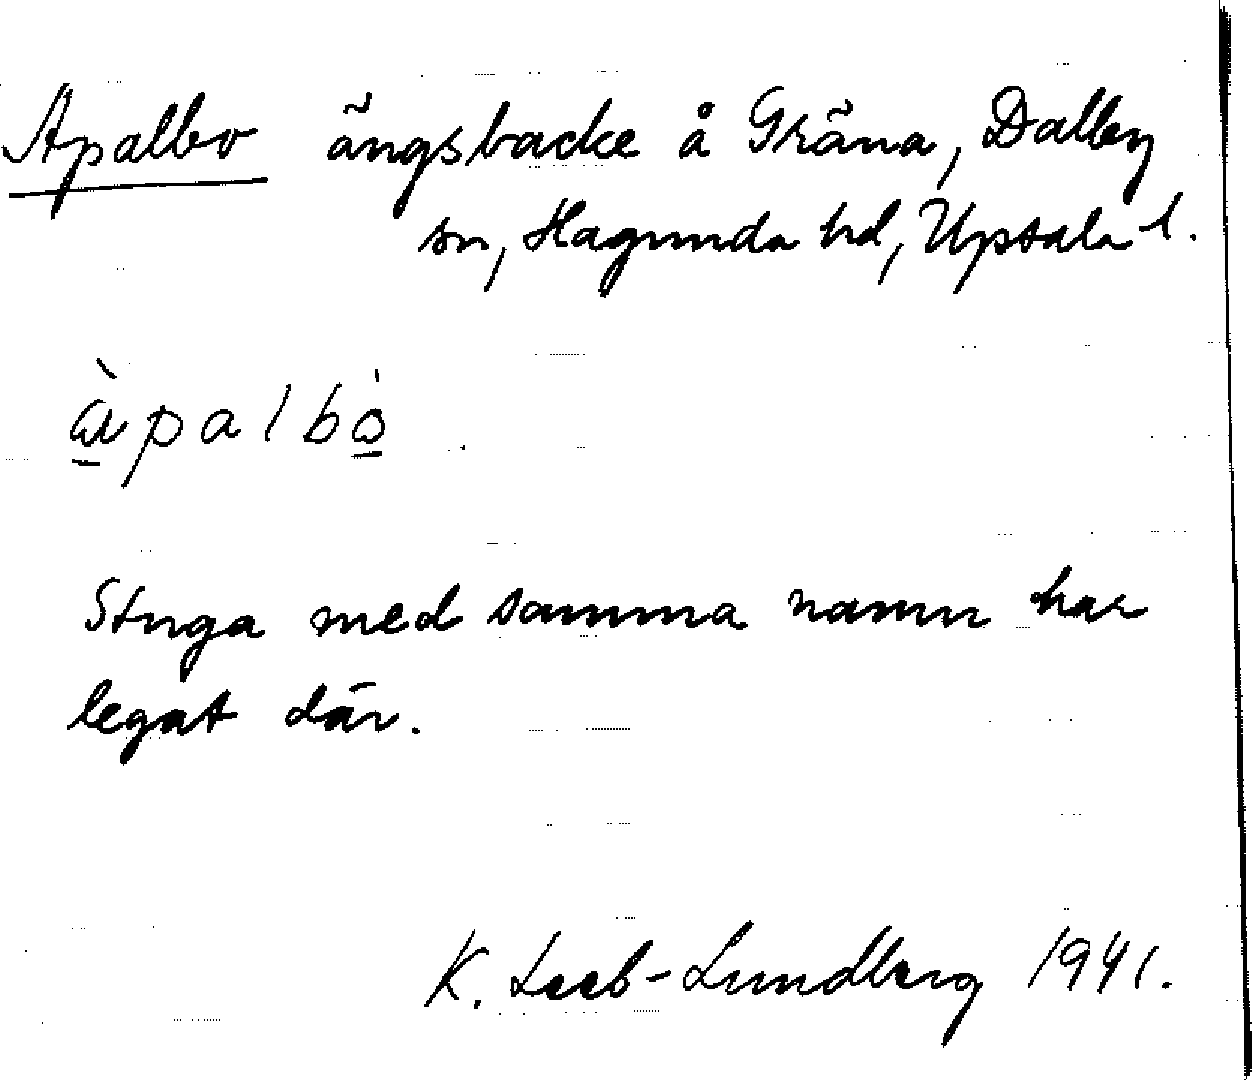 Apalbo ängsbacke å Gräna, Dalby
sn, Hagunda hd, Upsala l.
àpalbò
Stuga med samma namn har
legat där.
K. Leeb-Lundberg 1941.